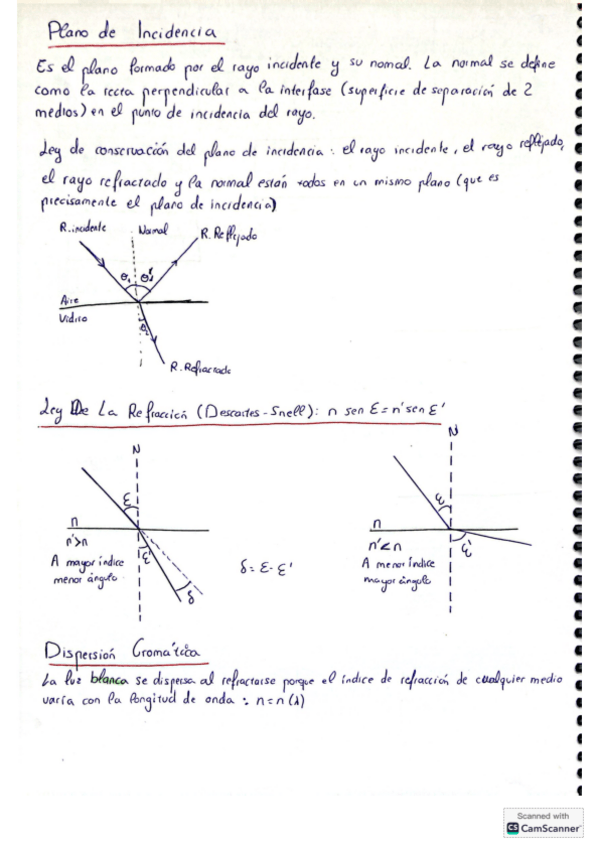 Plano de Incidencia
Es el plano formado por el rayo incidente y su nomal. La normal se define
como la recta perpendicular a la interfase (superficie de separación de 2
medios) en el punto de incidencia del rayo.
Ley de conservación del plano de incidencia: el rayo incidente, el rayo reflejado,
el rayo refractado y la normal están todos en un mismo plano (que es
precisamente el plano de incidencia)
R. incidente Normal R. Reflejado
θ₁
Aire
Vidrio
R. Refractado
Ley De La Refracción (Descartes-Snell): n sen ε = n' sen ε'
N N
ε ε
n n
n'>n n'<n
ε' ε'
A mayor índice A menor índice
menor ángulo. δ = ε - ε' mayor ángulo
δ
Dispersión Cromática
La luz blanca se dispersa al refractarse porque el índice de refracción de cualquier medio
varía con la longitud de onda : n = n(λ)
Scanned with
CS CamScanner